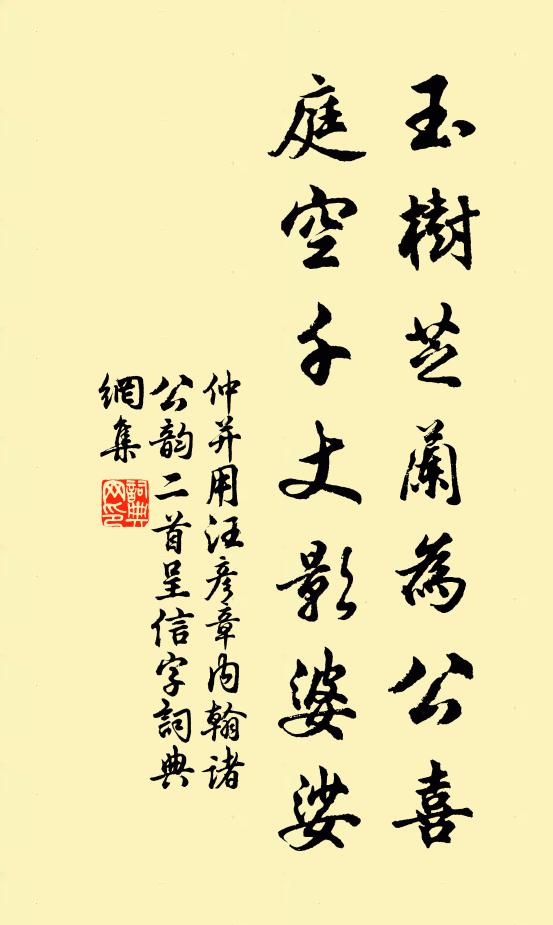 玉樹芝蘭為公喜
庭空千丈影婆娑
仲并用汪彥章内翰諸
公韵二首呈信字詞典
網集
詞典
网印